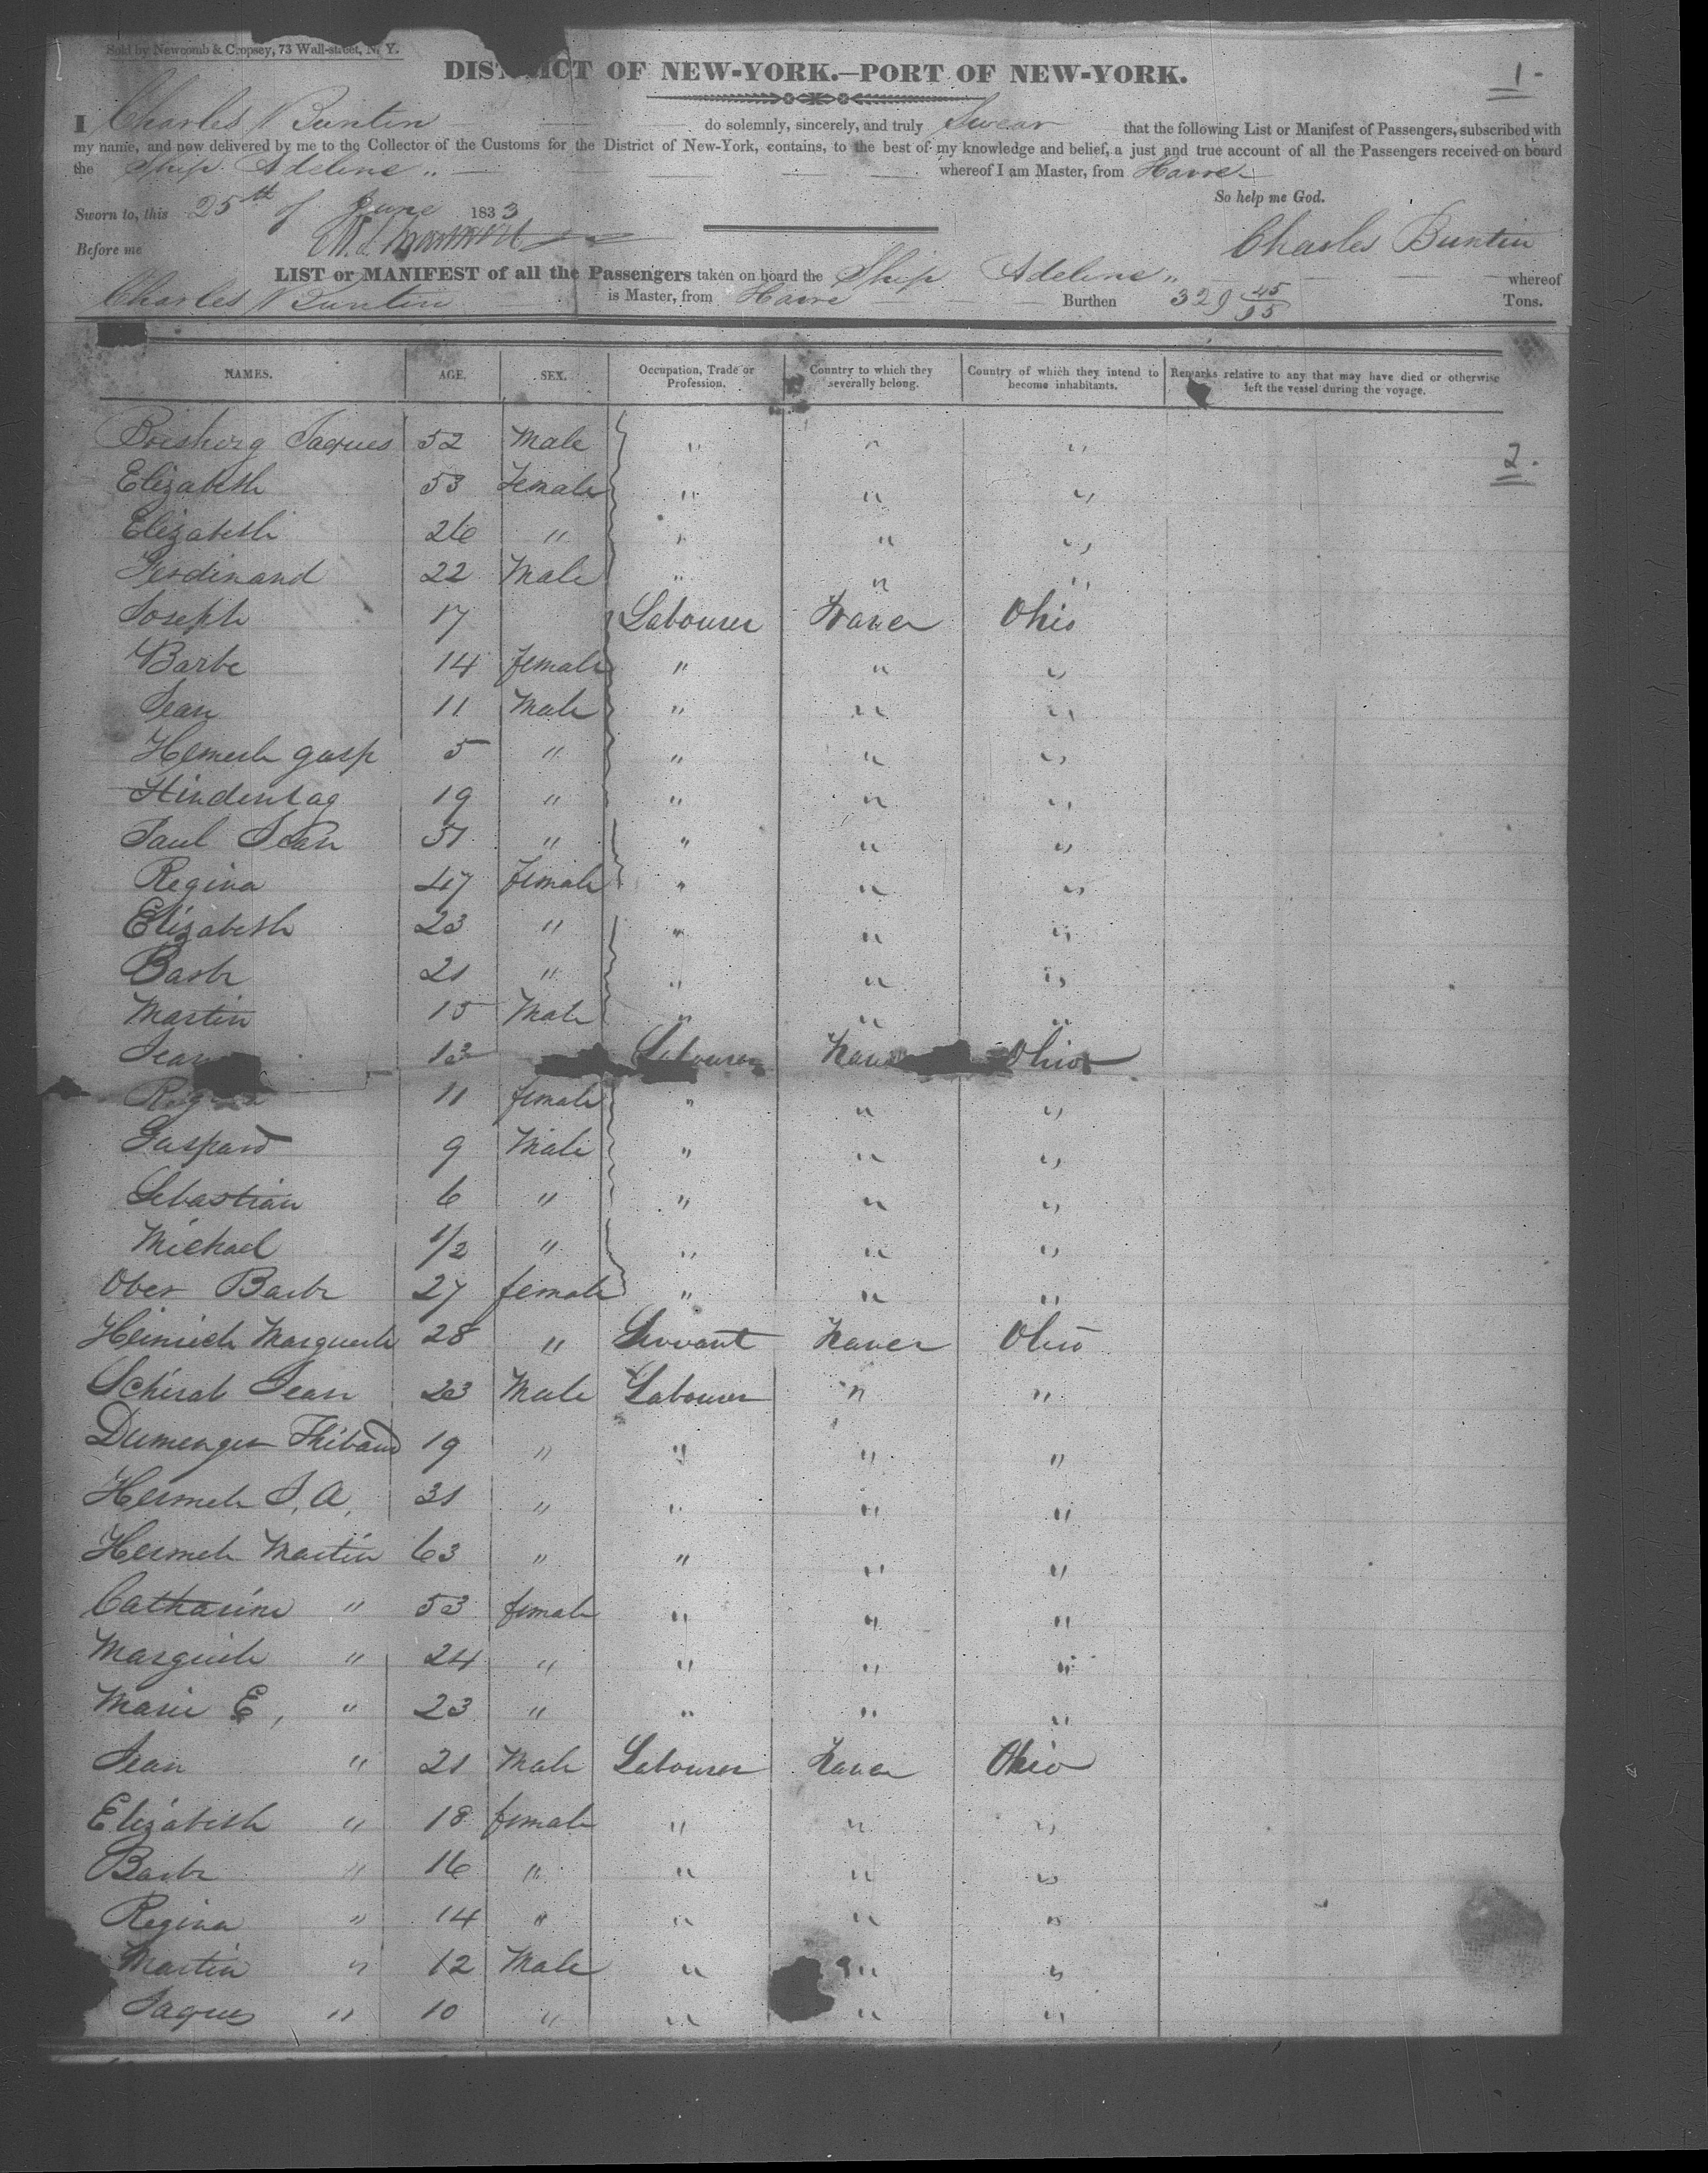 Sold by Newcomb & Cropsey, 73 Wall-street, N. Y.
DISTRICT OF NEW-YORK.—PORT OF NEW-YORK.
1-
I Charles N Buntin do solemnly, sincerely, and truly Swear that the following List or Manifest of Passengers, subscribed with
my name, and now delivered by me to the Collector of the Customs for the District of New-York, contains, to the best of my knowledge and belief, a just and true account of all the Passengers received on board
the Ship Adeline „ whereof I am Master, from Havre
So help me God.
Sworn to, this 25th of June 1833
Before me
Charles Buntin
LIST or MANIFEST of all the Passengers taken on board the Ship Adeline „ whereof
Charles N Buntin is Master, from Havre Burthen 329 45/95 Tons.
NAMES. AGE. SEX. Occupation, Trade or Profession. Country to which they severally belong. Country of which they intend to become inhabitants. Remarks relative to any that may have died or otherwise left the vessel during the voyage.
Jaques 52 Male " " "
2.
Elizabeth 53 Female " " "
Elizabeth 26 " " " "
Ferdinand 22 Male " " "
Joseph 17 Labourer Ohio
Barbe 14 female " " "
Jean 11 Male " " "
gasp 5 " " " "
Hindentag 19 " " " "
Paul Jean 51 " " " "
Regina 47 female " " "
Elizabeth 23 " " " "
Barbe 21 " " " "
Martin 15 Male " " "
Jean 13 Labourer Ohio
Regina 11 female " " "
Gaspard 9 Male " " "
Sebastian 6 " " " "
Michael 1/2 " " " "
Ober Barbe 27 female " " "
Heinrich Marguerite 28 " Servant Ohio
Jean 23 Male Labourer " "
Thibaud 19 " " " "
J. A. 31 " " " "
Martin 63 " " " "
Catharine " 53 female " " "
Marguerite " 24 " " " "
Marie E, " 23 " " " "
Jean " 21 Male Labourer Ohio
Elizabeth " 18 female " " "
Barbe " 16 " " " "
Regina " 14 " " " "
Martin " 12 Male " " "
Jaques " 10 " " " "